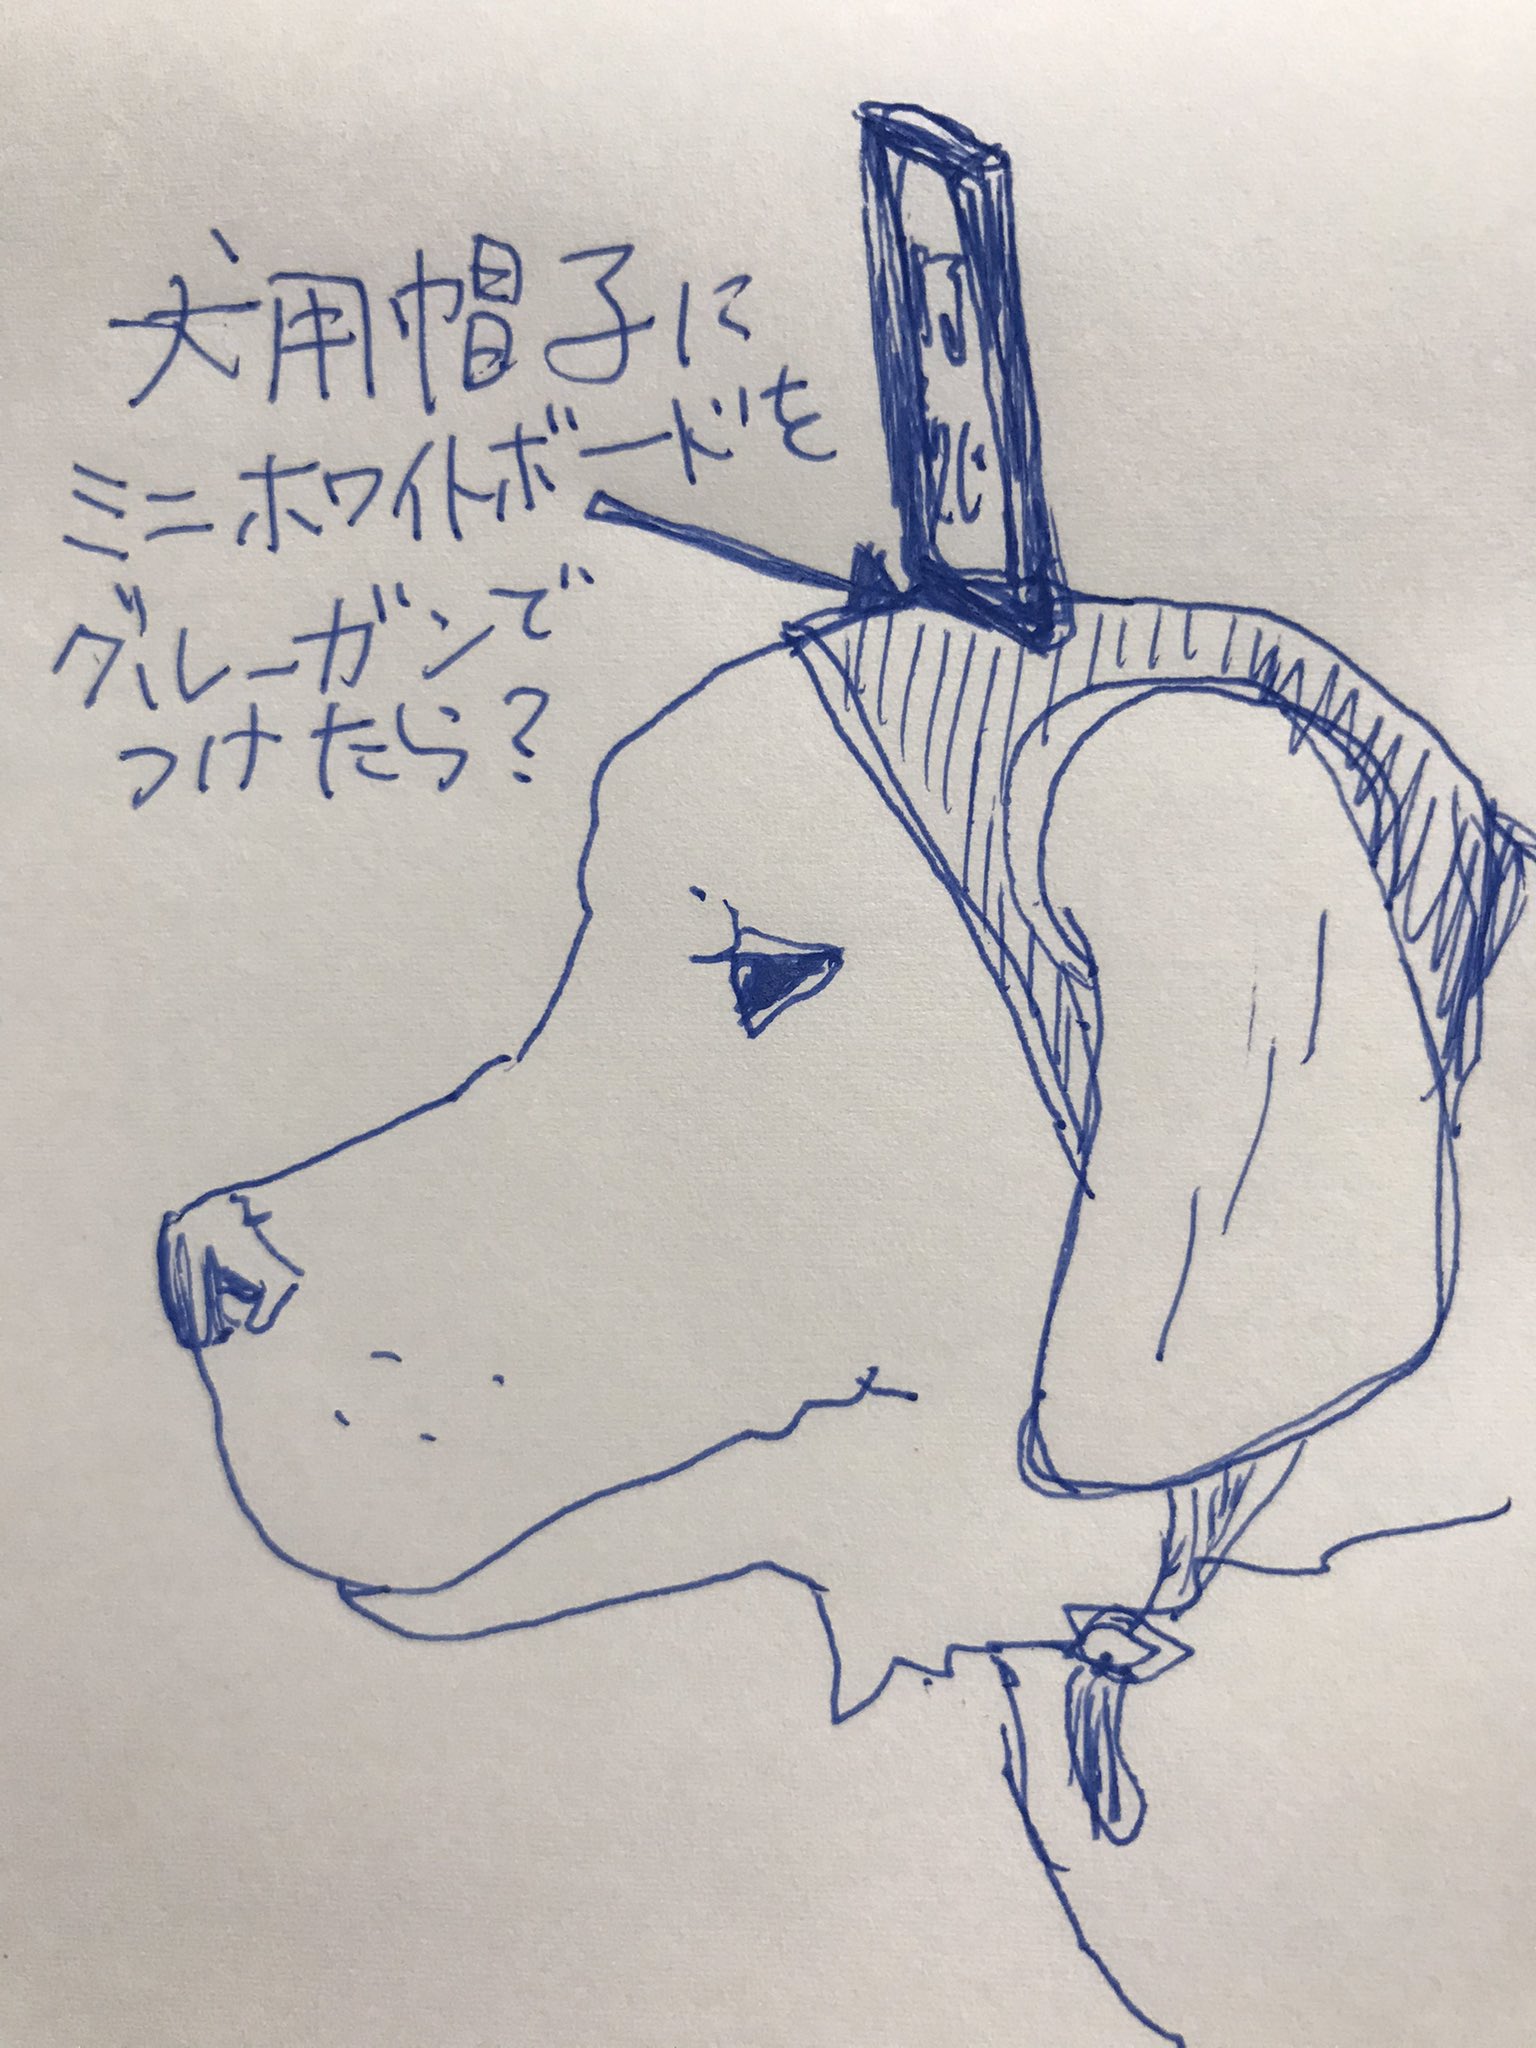 犬用帽子に
ミニホワイトボードを
グルーガンで
つけたら？